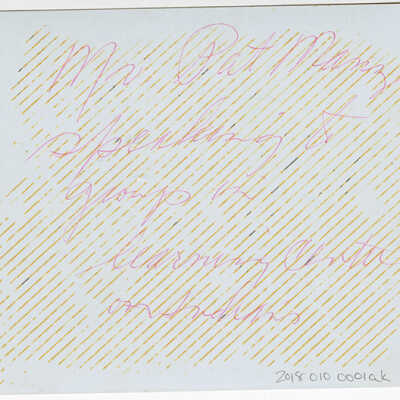 Mr Pat Manz
speaking to
group in
learning Centre
on Indians
2018 010 0001ak